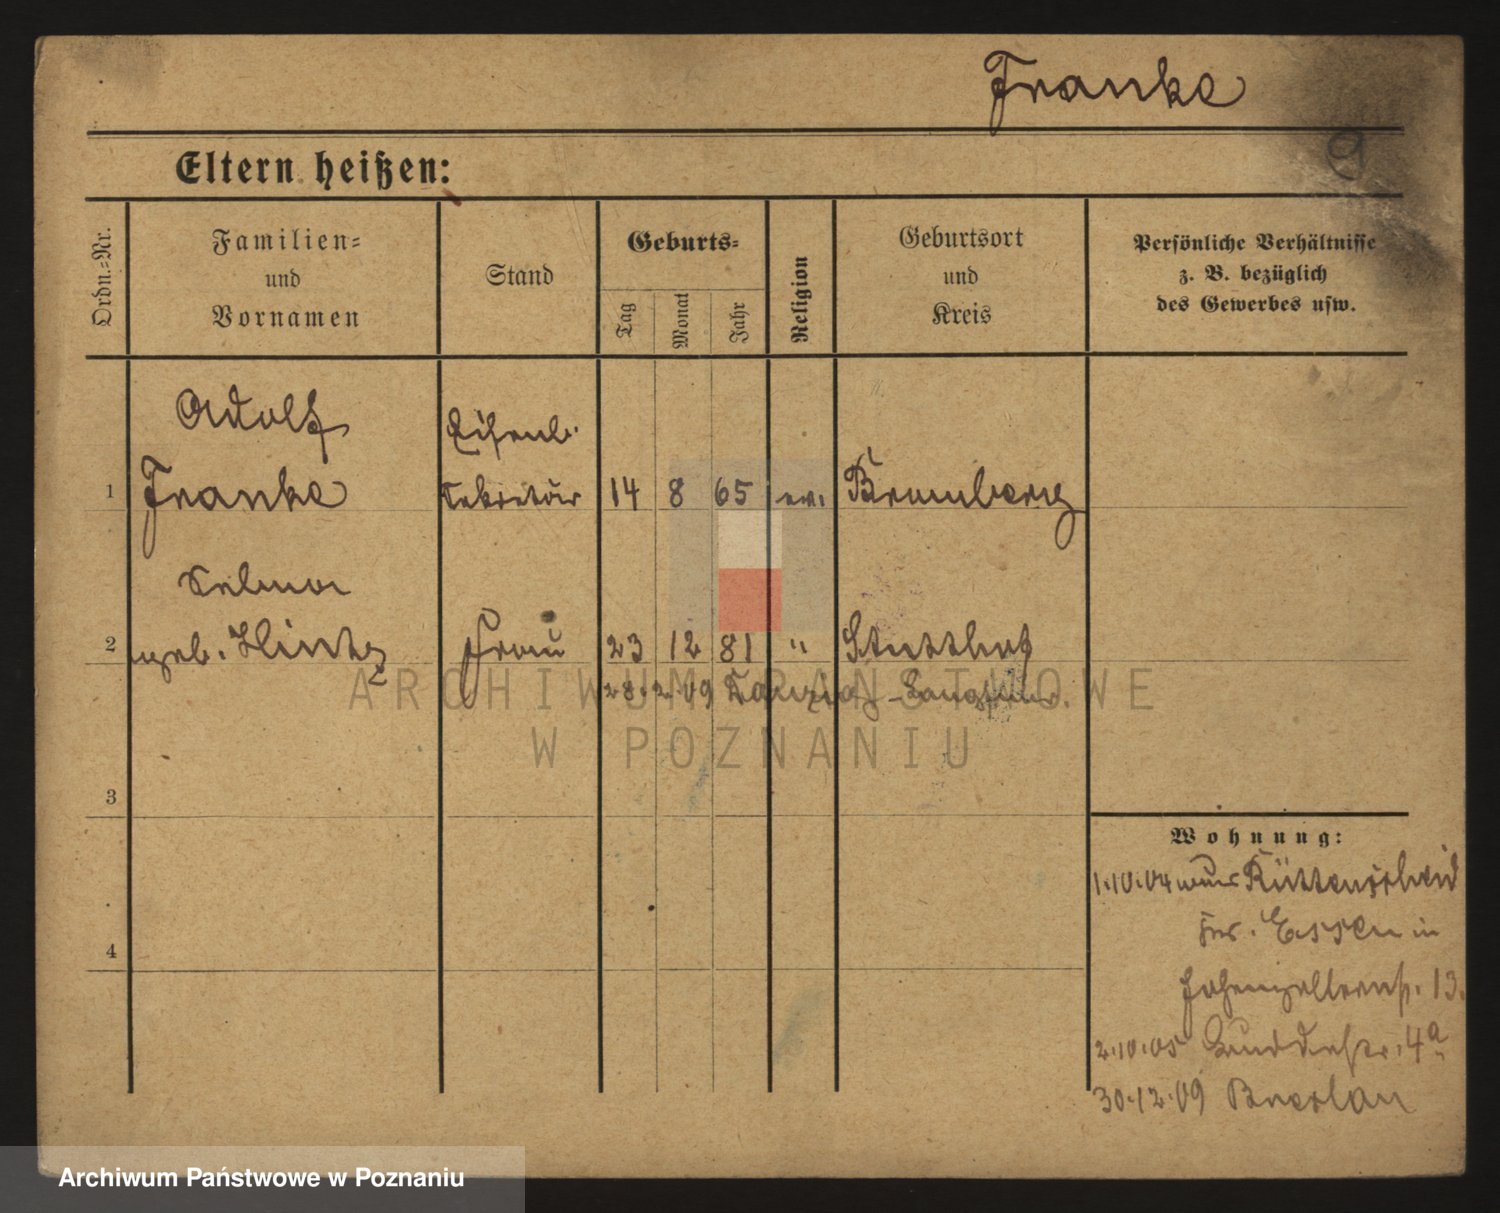 Franke
9
Eltern heißen:
Ordn.=Nr.
Familien=
und
Vornamen
Stand
Geburts=
Tag
Monat
Jahr
Religion
Geburtsort
und
Kreis
Persönliche Verhältnisse
z. B. bezüglich
des Gewerbes usw.
Adolf
Eisenb.
1 Franke Sekretär 14 8 65 ev. Bromberg
Selma
2 geb. Hintz Frau 23 12 81 " Stutthof
28.2.09 Danzig - Langfuhr.
3
4
Wohnung:
1.10.04 Rüttenscheid
Essen in
Hohenzollernstr. 13.
2.10.05 4a
30.12.09 Breslau
ARCHIWUM PAŃSTWOWE
W POZNANIU
Archiwum Państwowe w Poznaniu